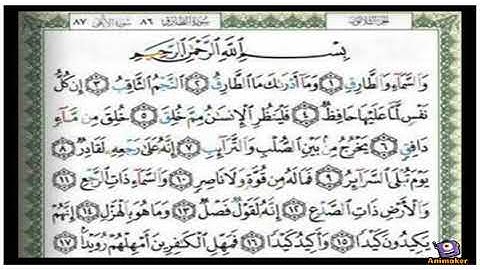 الجزء الثلاثون ٨٦ سورة الطارق سورة الأعلى ٨٧
بِسْمِ اللَّهِ الرَّحْمَٰنِ الرَّحِيمِ
وَالسَّمَاءِ وَالطَّارِقِ ١ وَمَا أَدْرَاكَ مَا الطَّارِقُ ٢ النَّجْمُ الثَّاقِبُ ٣ إِن كُلُّ
نَفْسٍ لَّمَّا عَلَيْهَا حَافِظٌ ٤ فَلْيَنظُرِ الْإِنسَانُ مِمَّ خُلِقَ ٥ خُلِقَ مِن مَّاءٍ
دَافِقٍ ٦ يَخْرُجُ مِن بَيْنِ الصُّلْبِ وَالتَّرَائِبِ ٧ إِنَّهُ عَلَىٰ رَجْعِهِ لَقَادِرٌ ٨
يَوْمَ تُبْلَى السَّرَائِرُ ٩ فَمَا لَهُ مِن قُوَّةٍ وَلَا نَاصِرٍ ١٠ وَالسَّمَاءِ ذَاتِ الرَّجْعِ ١١
وَالْأَرْضِ ذَاتِ الصَّدْعِ ١٢ إِنَّهُ لَقَوْلٌ فَصْلٌ ١٣ وَمَا هُوَ بِالْهَزْلِ ١٤ إِنَّهُمْ
يَكِيدُونَ كَيْدًا ١٥ وَأَكِيدُ كَيْدًا ١٦ فَمَهِّلِ الْكَافِرِينَ أَمْهِلْهُمْ رُوَيْدًا ١٧
Animaker